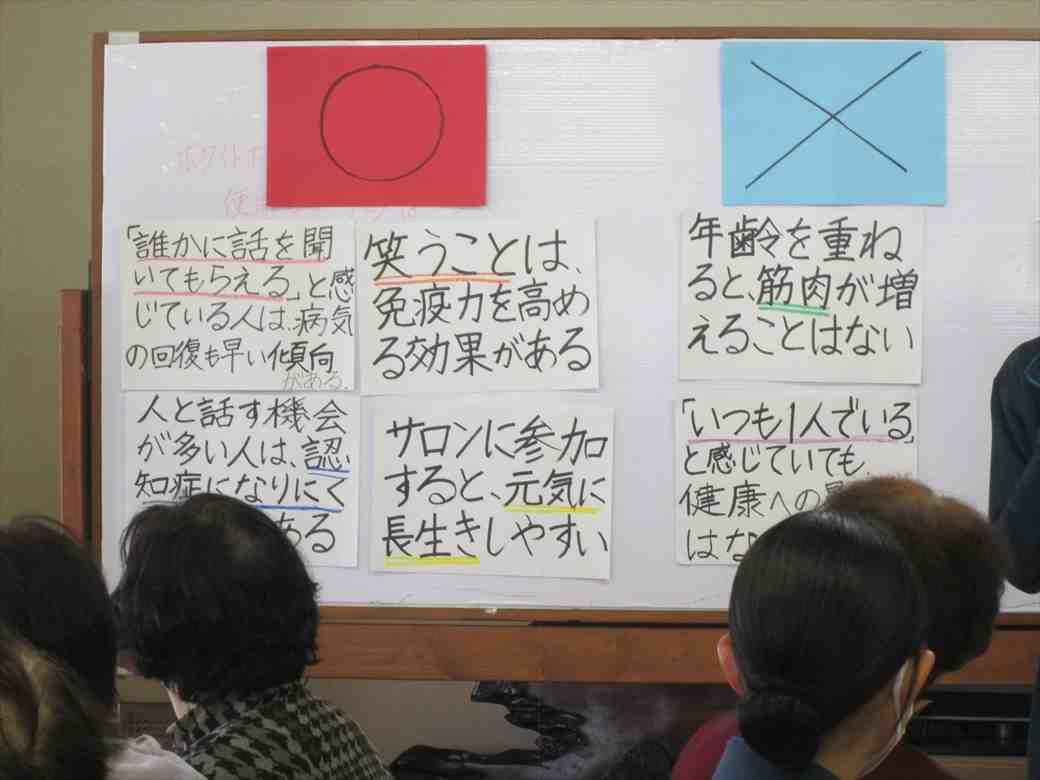 「誰かに話を聞
いてもらえる」と感
じている人は、病気
の回復も早い傾向
がある。
笑うことは、
免疫力を高め
る効果がある
年齢を重ね
ると、筋肉が増
えることはない
人と話す機会
が多い人は、認
知症になりにく
ある
サロンに参加
すると、元気に
長生きしやすい
「いつも1人でいる」
と感じていても、
健康への
はな